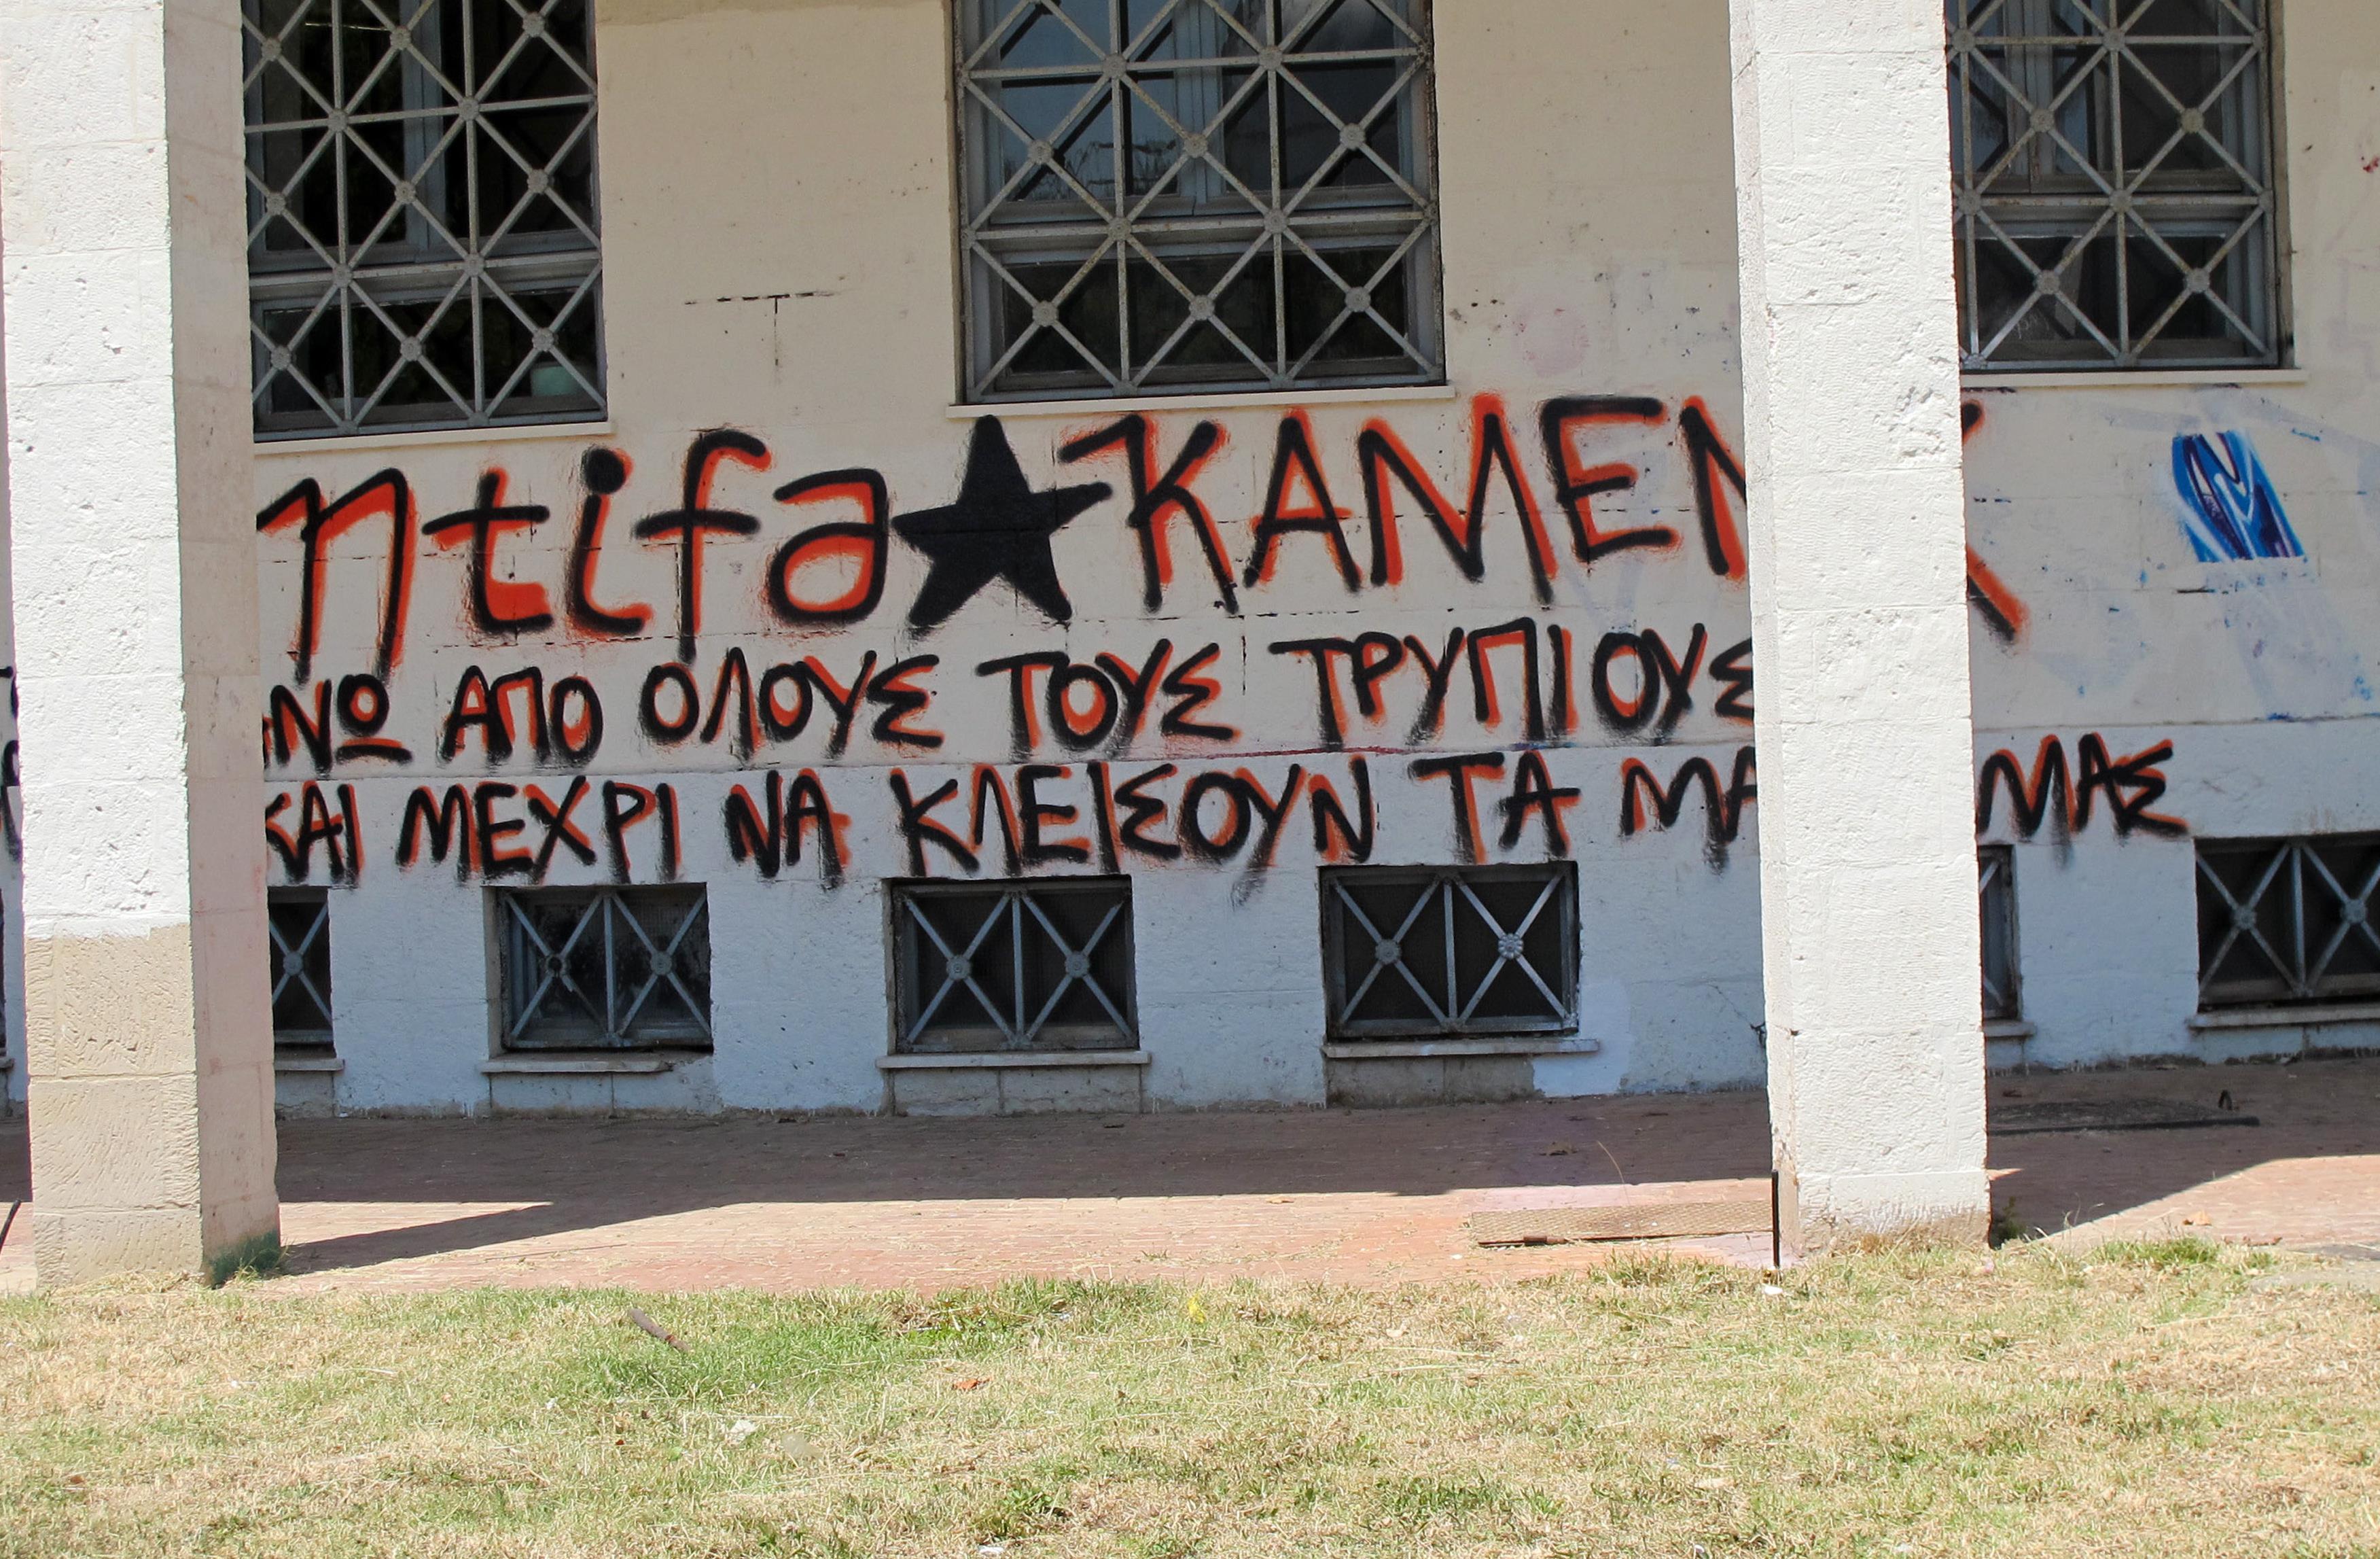 ntifa★ΚΑΜΕΝ
ΑΠΟ ΟΛΟΥΣ ΤΟΥΣ ΤΡΥΠΙΟΥΣ
ΚΑΙ ΜΕΧΡΙ ΝΑ ΚΛΕΙΣΟΥΝ ΤΑ ΜΑ ΜΑΣ